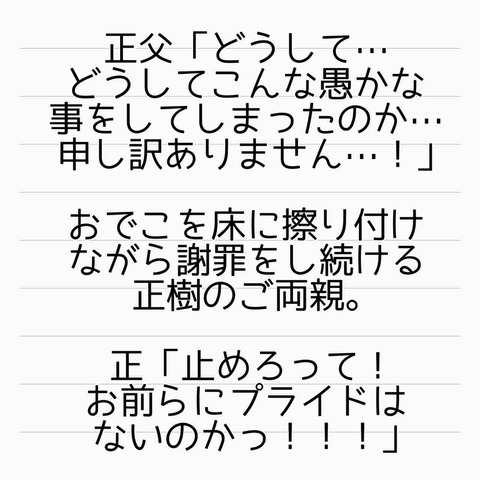 正父「どうして…
どうしてこんな愚かな
事をしてしまったのか…
申し訳ありません…！」
おでこを床に擦り付け
ながら謝罪をし続ける
正樹のご両親。
正「止めろって！
お前らにプライドは
ないのかっ！！！」